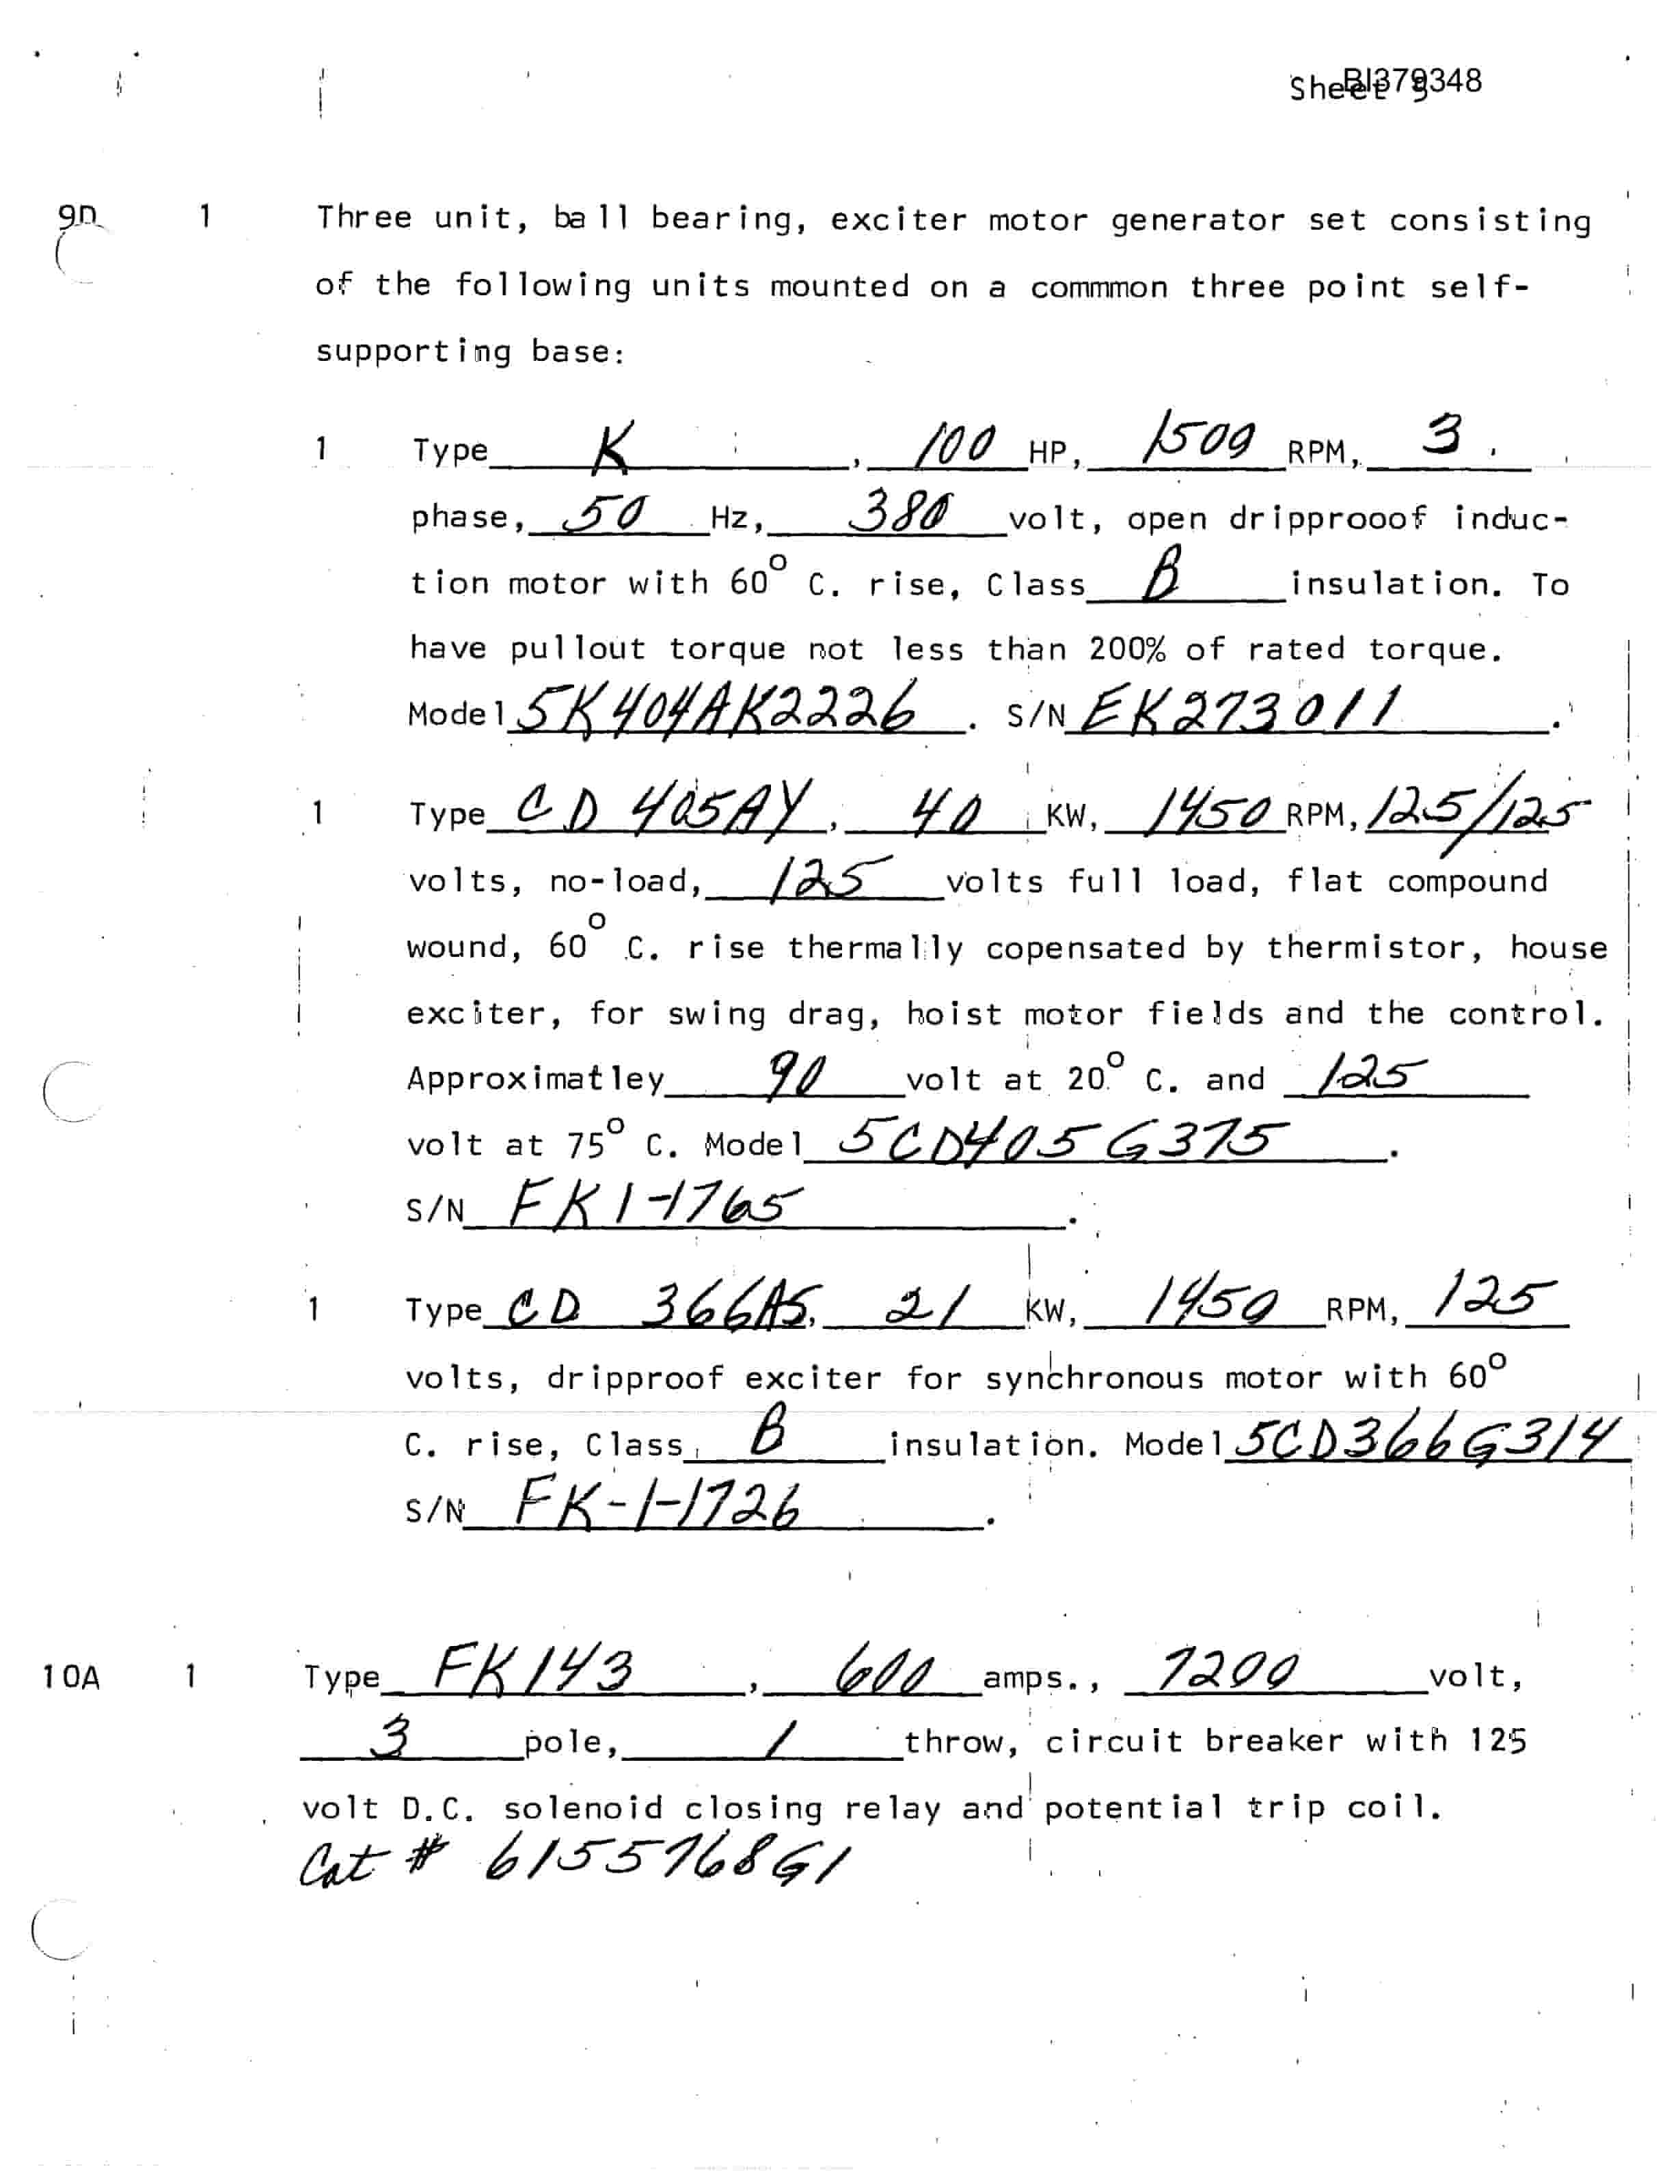 Sheet 5 BI379348
9D 1 Three unit, ball bearing, exciter motor generator set consisting
of the following units mounted on a commmon three point self-
supporting base:
1 Type K , 100 HP, 1500 RPM, 3
phase, 50 Hz, 380 volt, open dripprooof induc-
tion motor with 60° C. rise, Class B insulation. To
have pullout torque not less than 200% of rated torque.
Model 5K404AK2226 . S/N EK273011 .
1 Type CD 405AY, 40 KW, 1450 RPM, 125/125
volts, no-load, 125 volts full load, flat compound
wound, 60° C. rise thermally copensated by thermistor, house
exciter, for swing drag, hoist motor fields and the control.
Approximatley 90 volt at 20° C. and 125
volt at 75° C. Model 5CD405G375 .
S/N FK1-1765 .
1 Type CD 366AS, 21 KW, 1450 RPM, 125
volts, dripproof exciter for synchronous motor with 60°
C. rise, Class B insulation. Model 5CD366G314
S/N FK-1-1726 .
10A 1 Type FK143 , 600 amps., 7200 volt,
3 pole, 1 throw, circuit breaker with 125
volt D.C. solenoid closing relay and potential trip coil.
Cat # 6155768G1